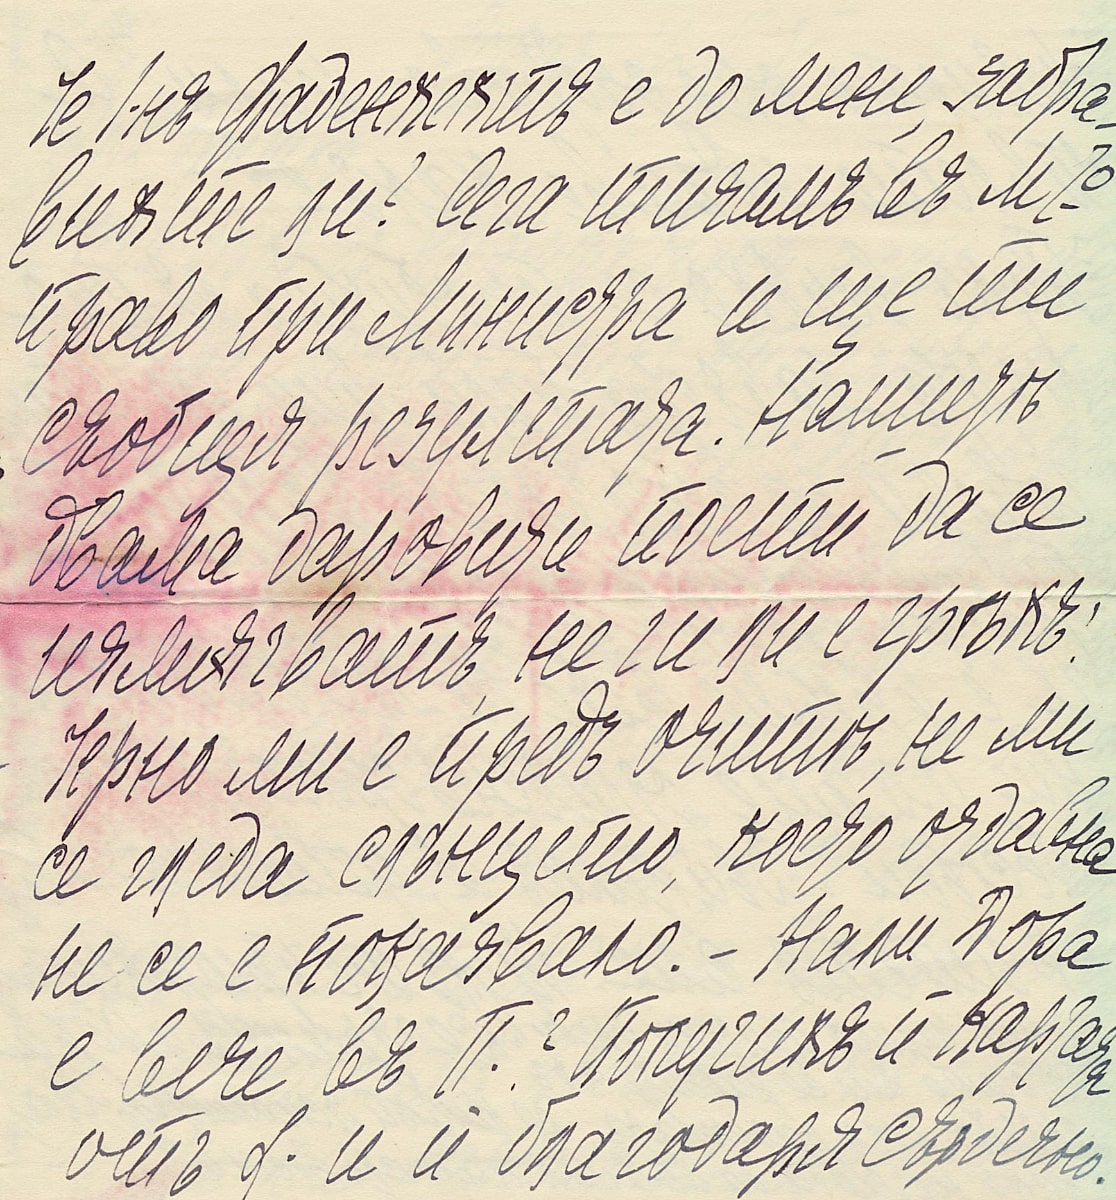 че г-нъ Фаденхехтъ е до мене, забра-
вихте ли? Сега тичамъ въ М-то
право при Министра и ще ти
съобщя резултата. Нашитѣ
двама даровити поети да се
измѫчватъ, не ги ли е грѣхъ!
Черно ми е предъ очитѣ, не ми
се гледа слънцето, което отдавна
не се е показвало. – Нали Дора
е вече въ П.? Получихъ й картата
отъ и й благодаря сърдечно.